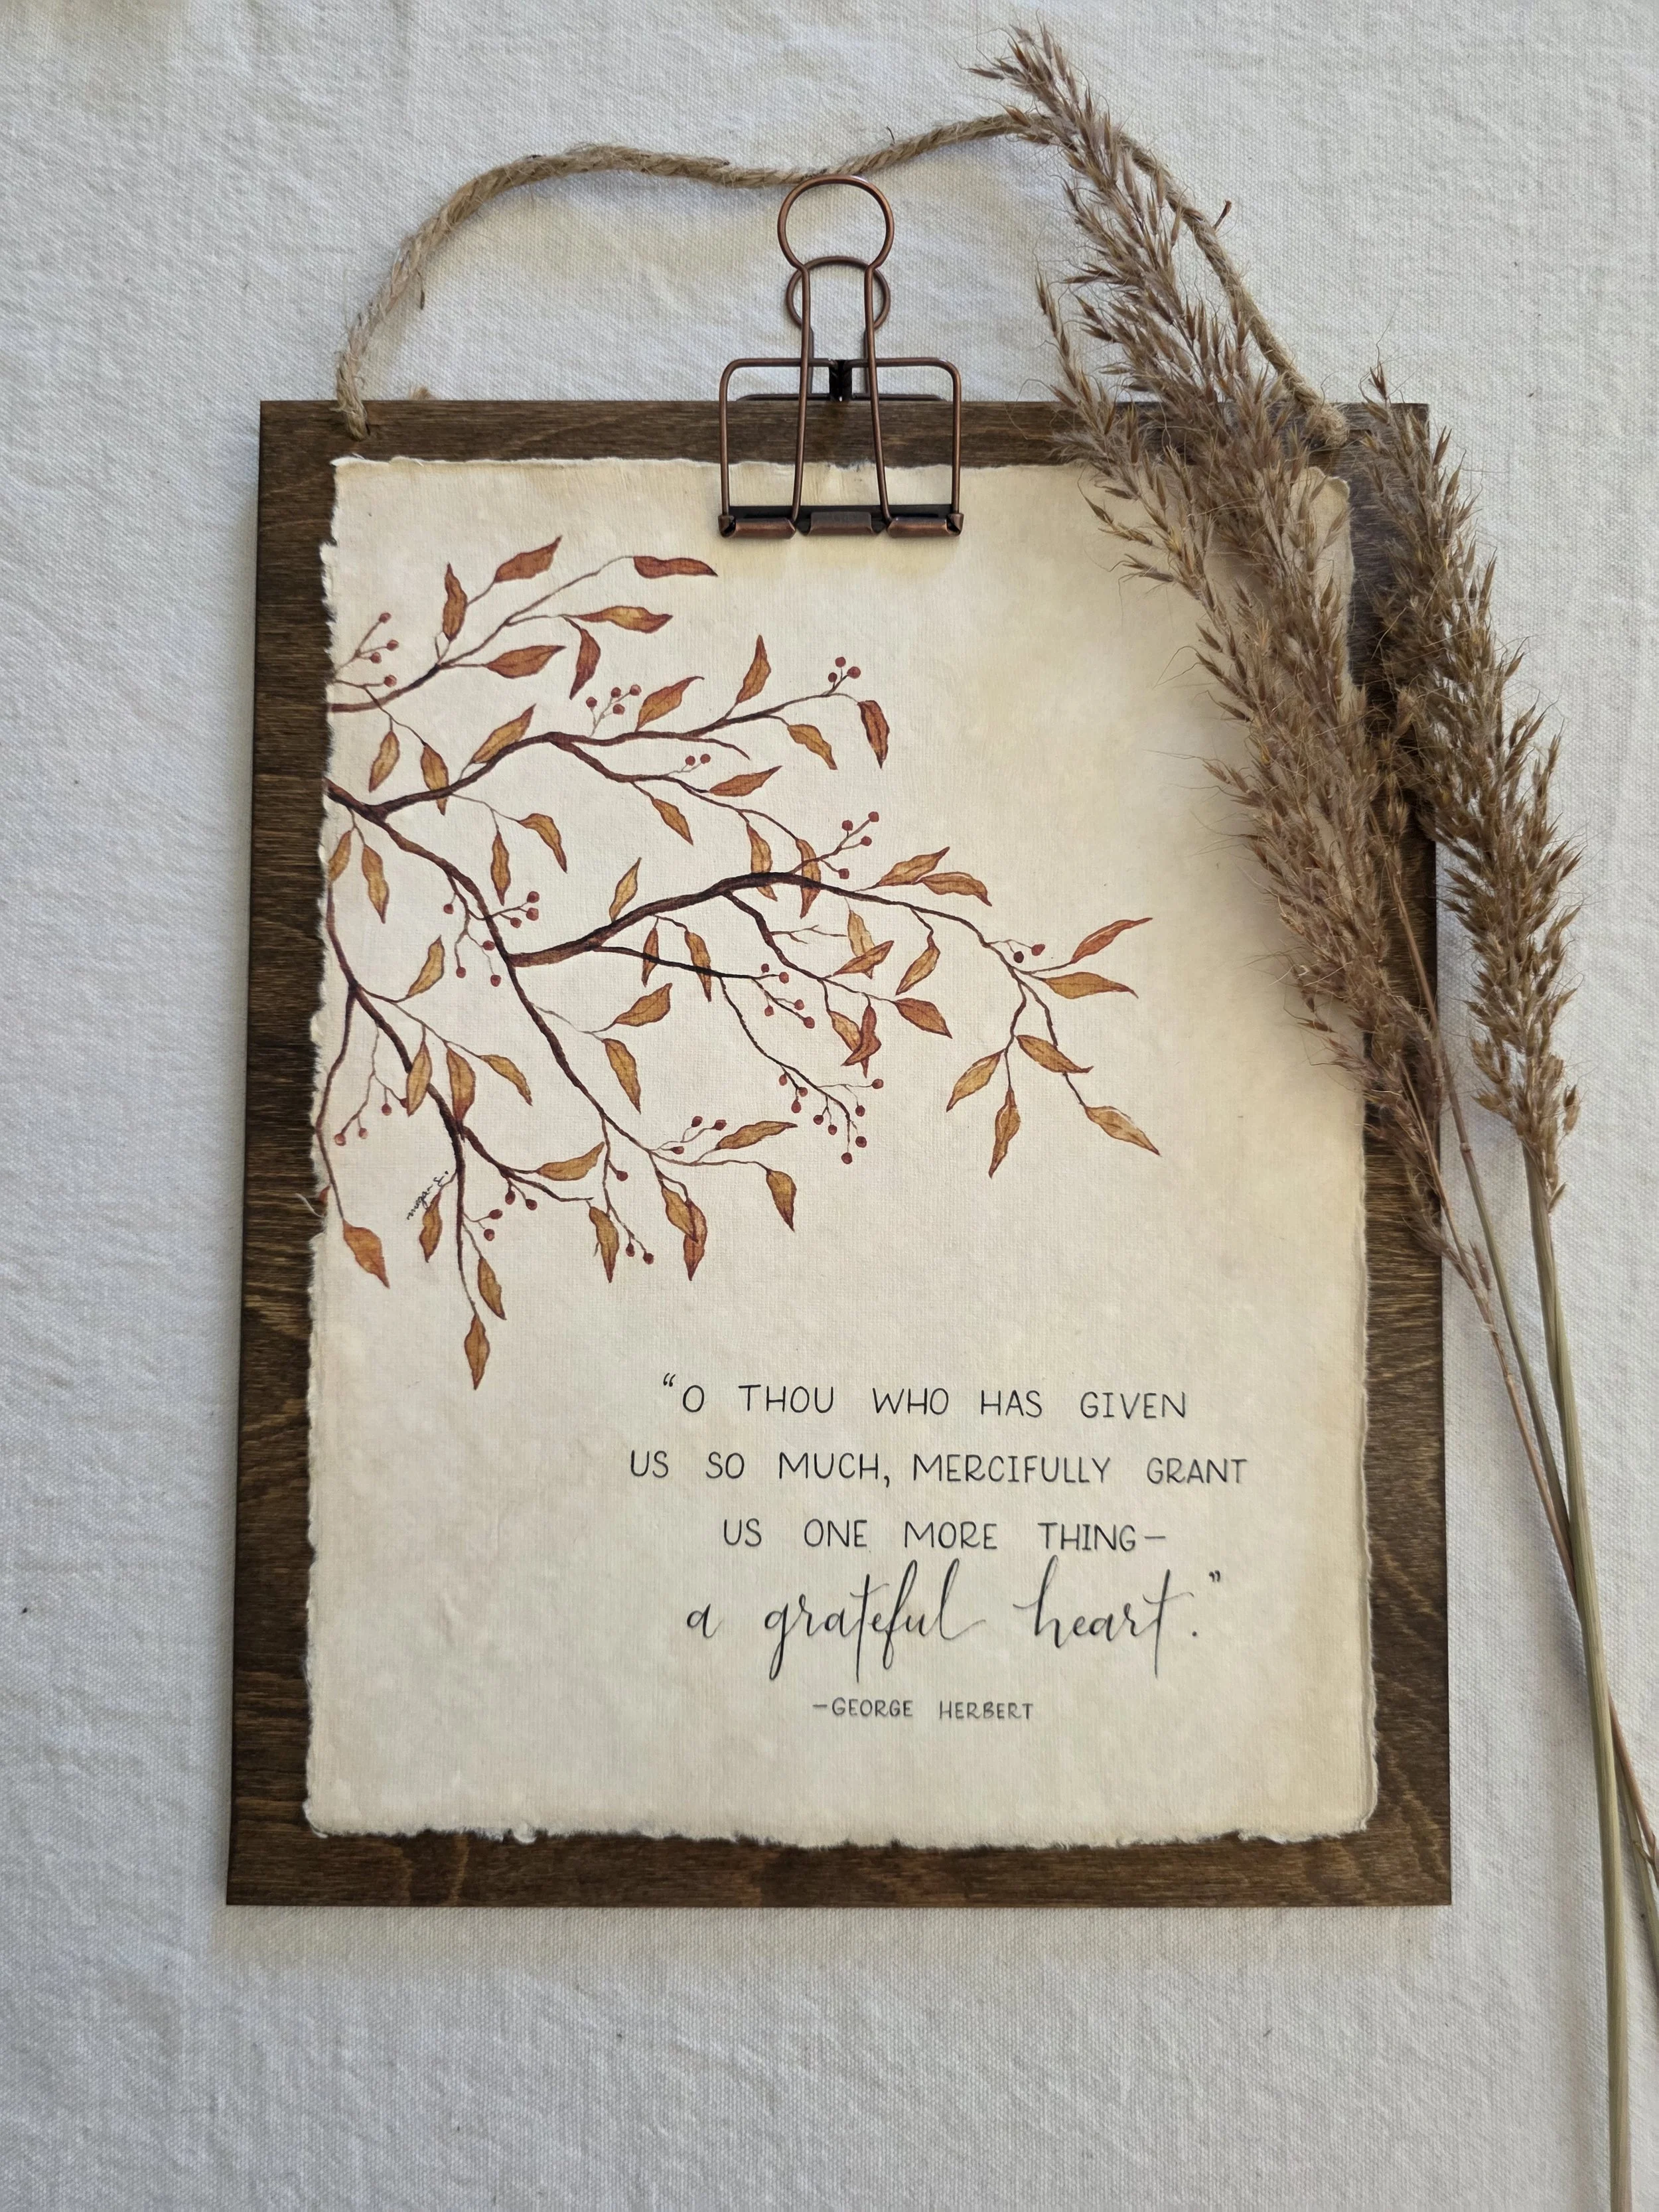 “O THOU WHO HAS GIVEN
US SO MUCH, MERCIFULLY GRANT
US ONE MORE THING—
a grateful heart.”
—GEORGE HERBERT